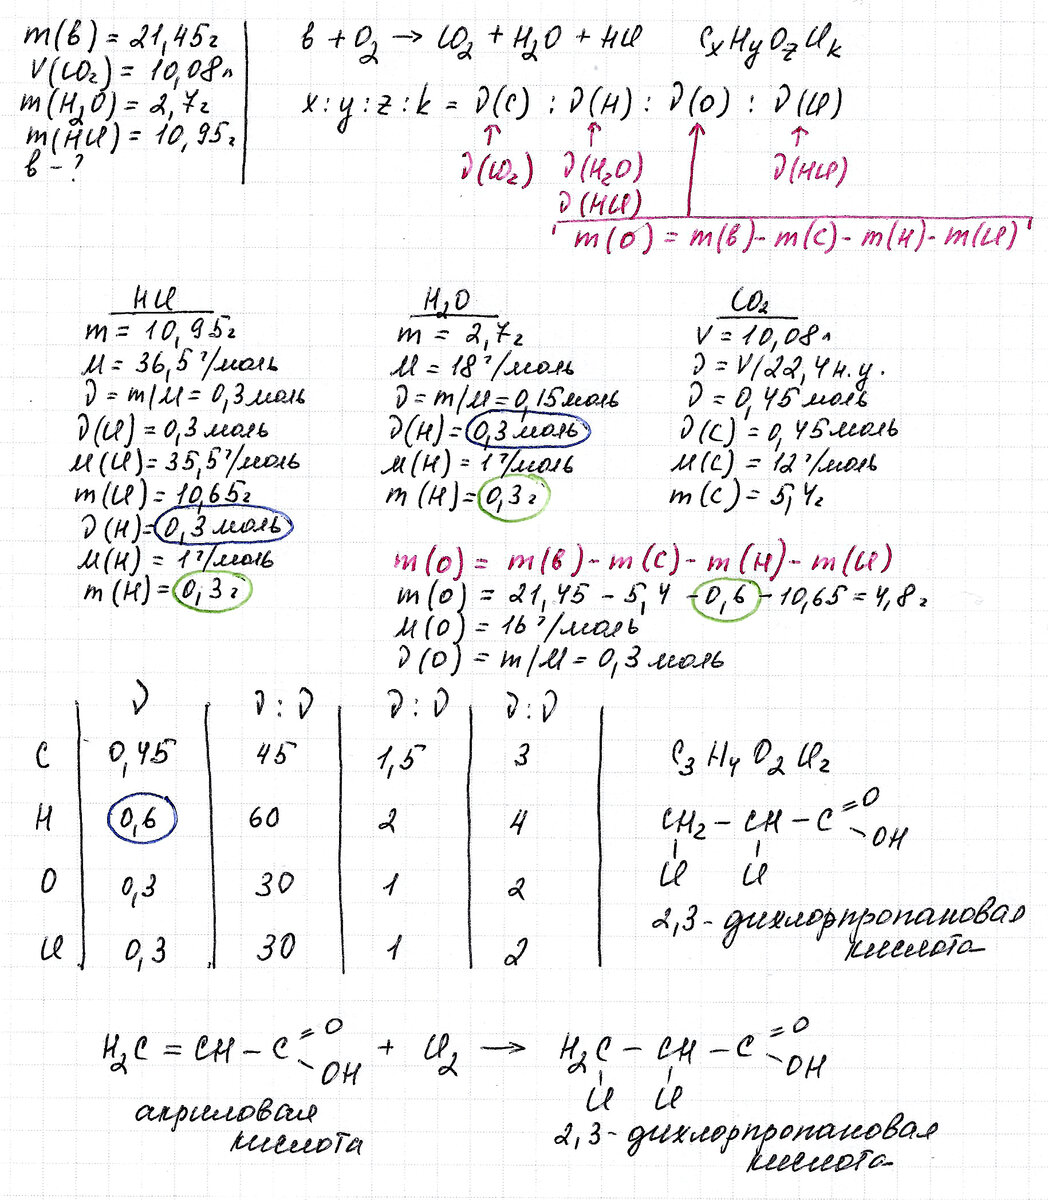 m(в) = 21,45г
V(CO₂) = 10,08л
m(H₂O) = 2,7г
m(HCl) = 10,95г
в - ?
в + O₂ → CO₂ + H₂O + HCl CxHyOzClk
x : y : z : k = ν(C) : ν(H) : ν(O) : ν(Cl)
↑ ↑ ↑
ν(CO₂) ν(H₂O) ν(HCl)
ν(HCl)
m(O) = m(в) - m(C) - m(H) - m(Cl)
HCl
m = 10,95г
M = 36,5 г/моль
ν = m/M = 0,3 моль
ν(Cl) = 0,3 моль
M(Cl) = 35,5 г/моль
m(Cl) = 10,65г
ν(H) = 0,3 моль
M(H) = 1 г/моль
m(H) = 0,3 г
H₂O
m = 2,7г
M = 18 г/моль
ν = m/M = 0,15 моль
ν(H) = 0,3 моль
M(H) = 1 г/моль
m(H) = 0,3 г
CO₂
V = 10,08л
ν = V/22,4 н.у.
ν = 0,45 моль
ν(C) = 0,45 моль
M(C) = 12 г/моль
m(C) = 5,4г
m(O) = m(в) - m(C) - m(H) - m(Cl)
m(O) = 21,45 - 5,4 - 0,6 - 10,65 = 4,8 г
M(O) = 16 г/моль
ν(O) = m/M = 0,3 моль
ν ν : ν ν : ν ν : ν
C 0,45 45 1,5 3
H 0,6 60 2 4
O 0,3 30 1 2
Cl 0,3 30 1 2
C₃H₄O₂Cl₂
CH₂ - CH - C =O -OH
Cl Cl
2,3 - дихлорпропановая
кислота
H₂C = CH - C =O -OH + Cl₂ → H₂C - CH - C =O -OH
Cl Cl
акриловая
кислота
2,3 - дихлорпропановая
кислота